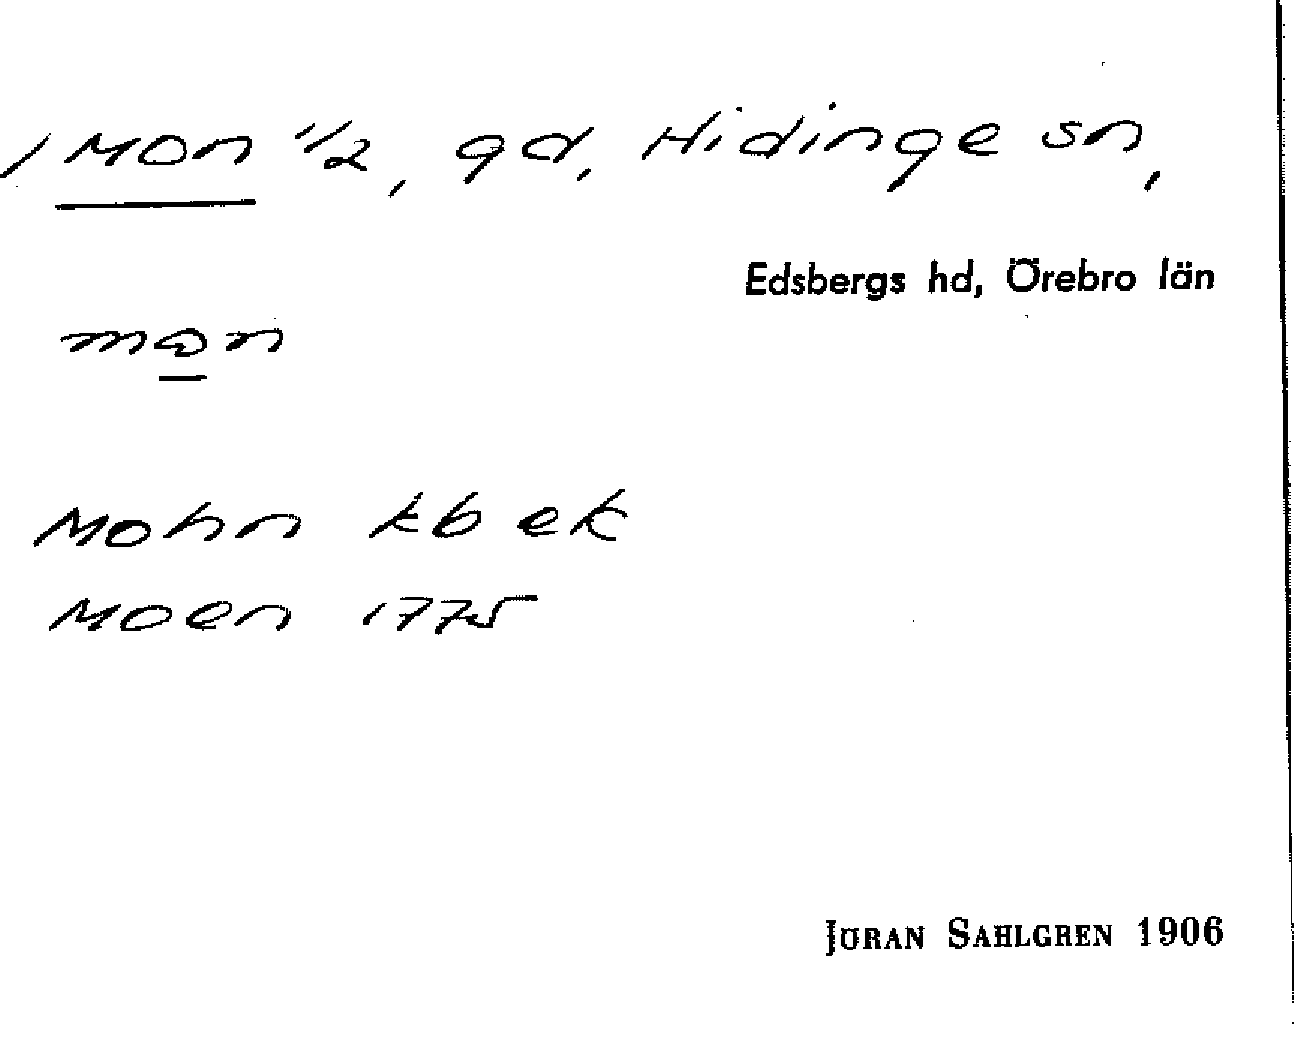 / Mon 1/2, gd, Hidinge sn,
Edsbergs hd, Örebro län
Mohn kb ek
Moen 1775
JÖRAN SAHLGREN 1906